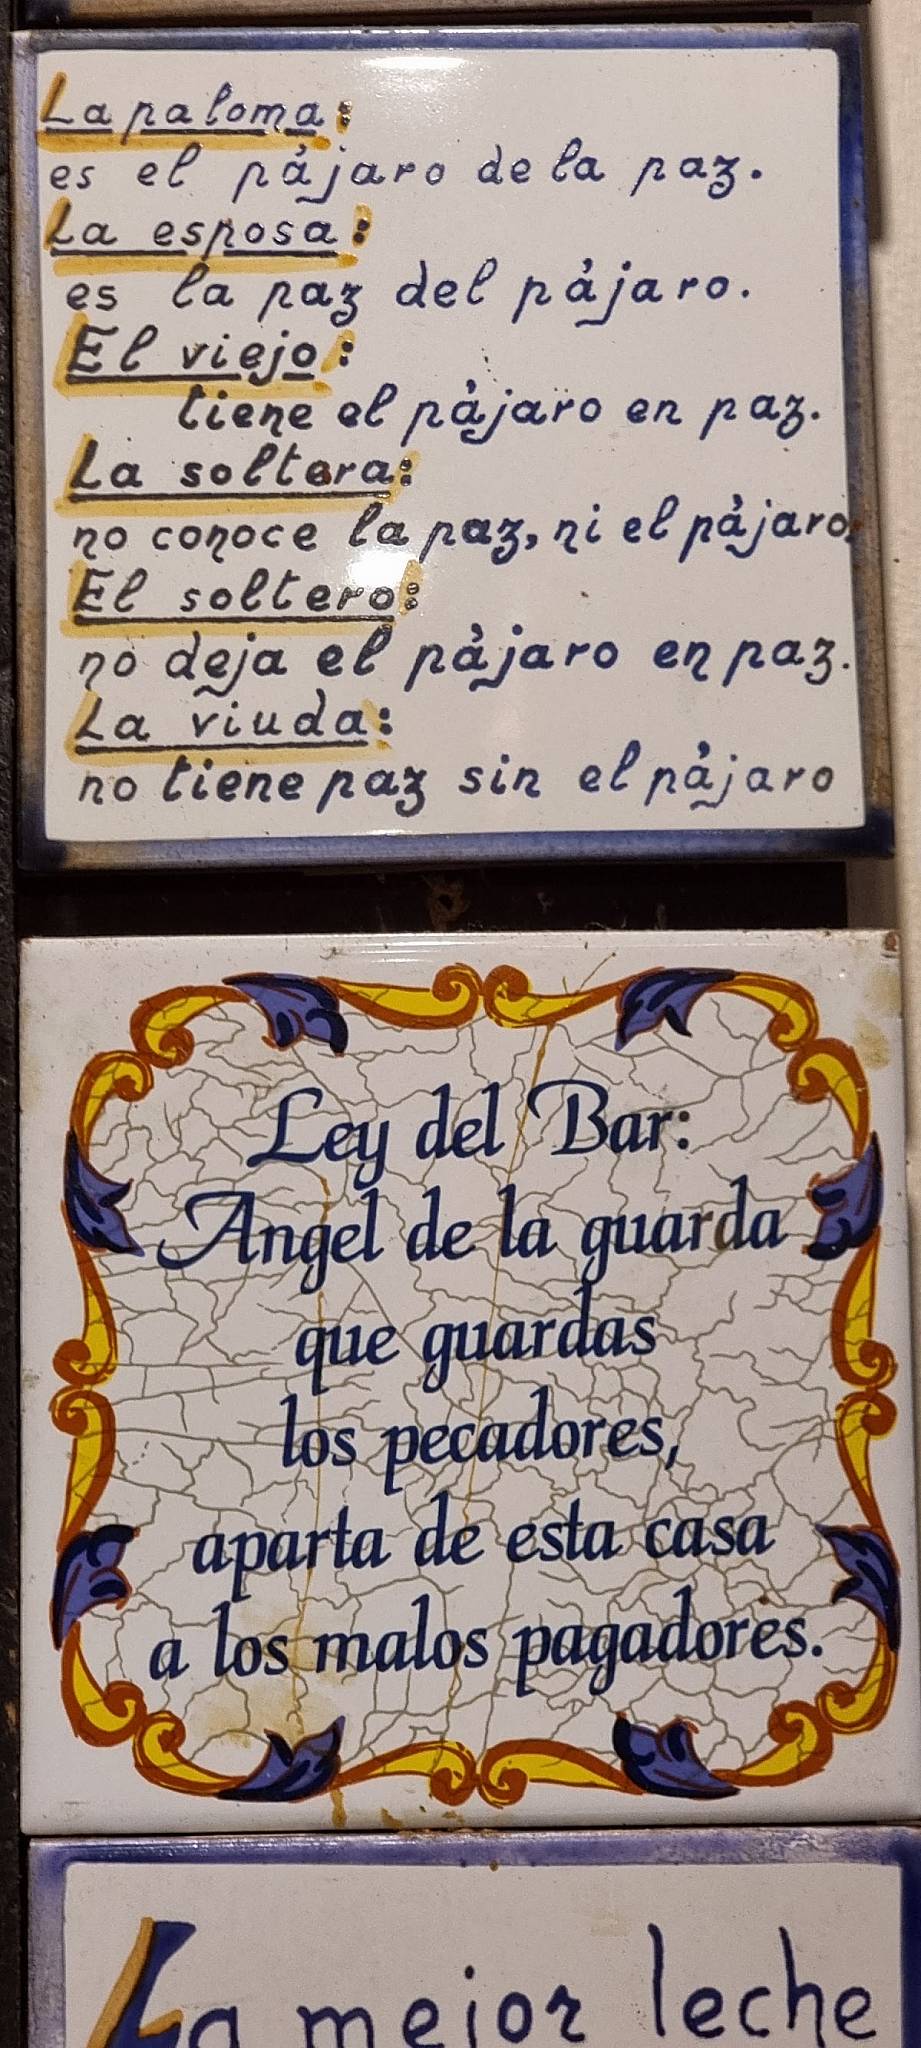 La paloma:
es el pájaro de la paz.
La esposa:
es la paz del pájaro.
El viejo:
tiene el pájaro en paz.
La soltera:
no conoce la paz, ni el pájaro.
El soltero:
no deja el pájaro en paz.
La viuda:
no tiene paz sin el pájaro
Ley del Bar:
Angel de la guarda
que guardas
los pecadores,
aparta de esta casa
a los malos pagadores.
La mejor leche